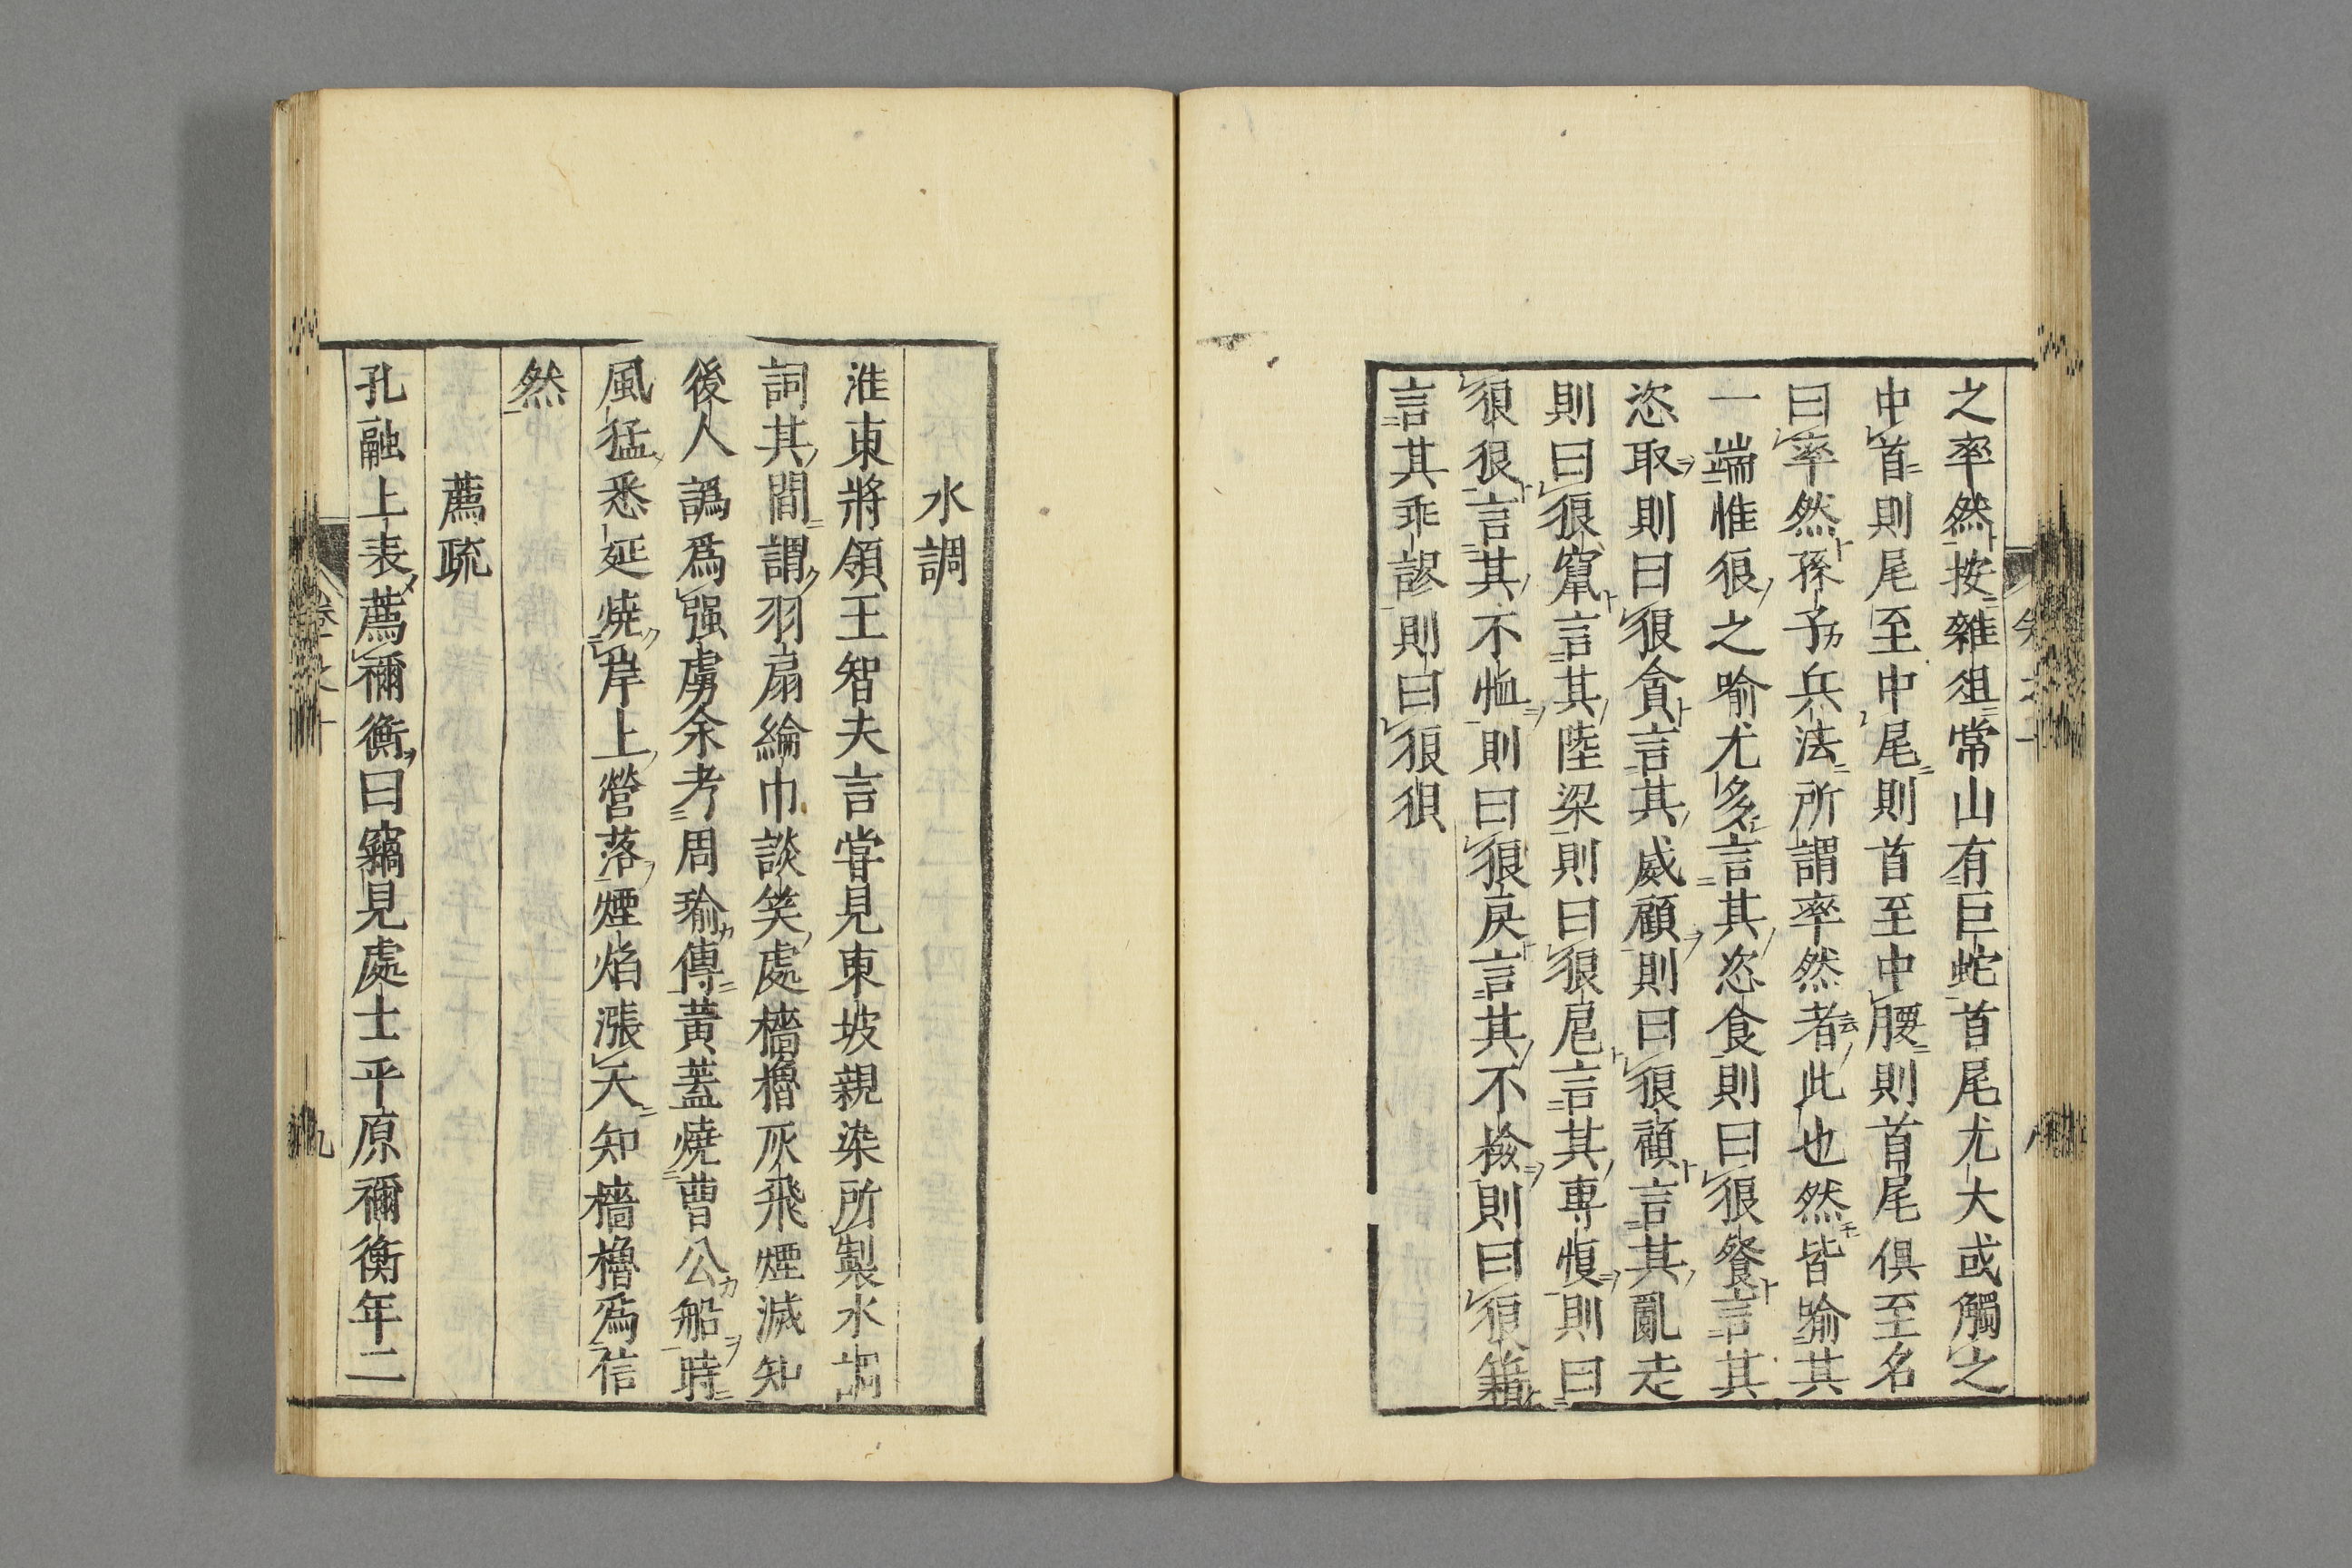 之率然按雜俎常山有巨蛇首尾尤大或觸之
中首則尾至中尾則首至中腰則首尾俱至名
曰率然孫子兵法所謂率然者此也然皆喻其
一端惟狼之喻尤多言其恣食則曰狼餐言其
恣取則曰狼貪言其威顧則曰狼顧言其亂走
則曰狼竄言其陸梁則曰狼扈言其專愎則曰
狼狠言其不恤則曰狼戾言其不檢則曰狼籍
言其乖謬則曰狼狽
水調
淮東將領王智夫言嘗見東坡親染所製水調
詞其間謂羽扇綸巾談笑處檣櫓灰飛煙滅知
後人譌爲强虜余考周瑜傳黃蓋燒曹公船時
風猛悉延燒岸上營落煙焰漲天知檣櫓爲信
然
薦疏
孔融上表薦禰衡曰竊見處士平原禰衡年二
九